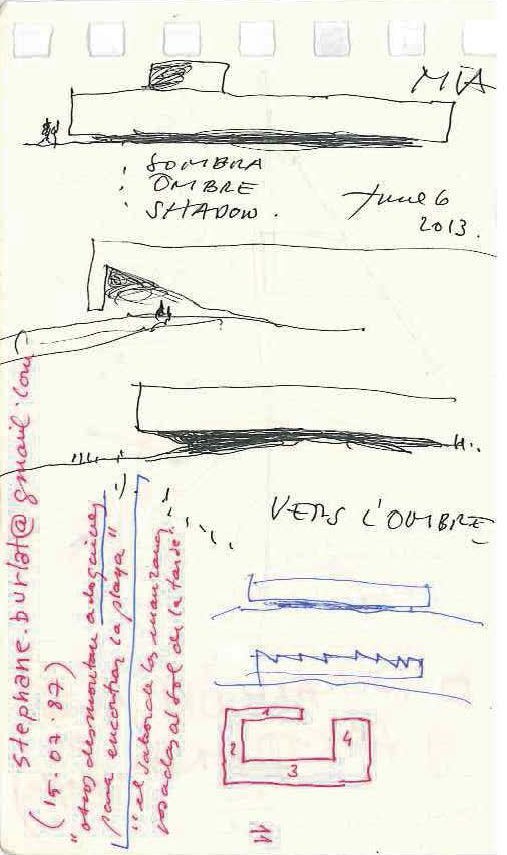 MIA
: SOMBRA
: OMBRE
· SHADOW.
June 6
2013.
VERS L'OMBRE
1
2
3
4
stephane.burlat@gmail.com
(15.07.87)
"otros desmontan adoquines
para encontrar la playa"
"el sabor de las manzanas
al sol de la tarde"
11